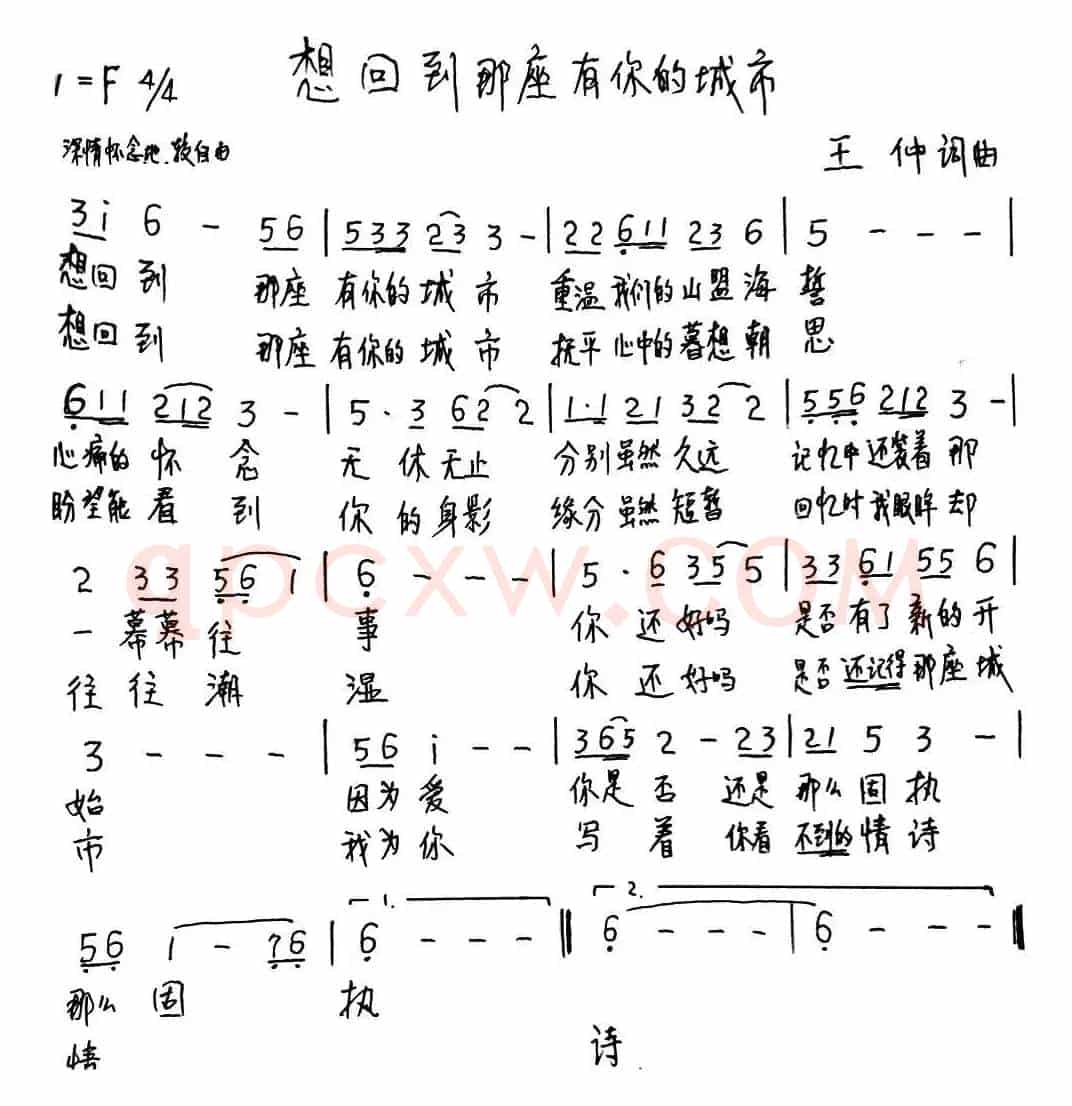 想回到那座有你的城市
1=F 4/4
深情怀念地、较自由
王仲词曲
3 i 6 - 5 6 | 5 3 3 2 3 3 - | 2 2 6 1 1 2 3 6 | 5 - - - |
想回到 那座 有你的城市 重温我们的山盟海誓
想回到 那座 有你的城市 抚平心中的暮想朝思
6 1 1 2 1 2 3 - | 5 · 3 6 2 2 | 1 · 1 2 1 3 2 2 | 5 5 6 2 1 2 3 - |
心痛的怀念 无休无止 分别虽然久远 记忆中还装着那
盼望能看到 你的身影 缘分虽然短暂 回忆时我眼眸却
2 3 3 5 6 1 | 6 - - - | 5 · 6 3 5 5 | 3 3 6 1 5 5 6 |
一幕幕往 事 你还好吗 是否有了新的开
往往潮 湿 你还好吗 是否还记得那座城
qpcxw.com
3 - - - | 5 6 i - - | 3 6 5 2 - 2 3 | 2 1 5 3 - |
始 因为爱 你是否 还是那么固执
市 我为你 写着 你看不到的情诗
1. 2.
5 6 1 - 7 6 | 6 - - - ‖ 6 - - - | 6 - - - ‖
那么固 执
情 诗